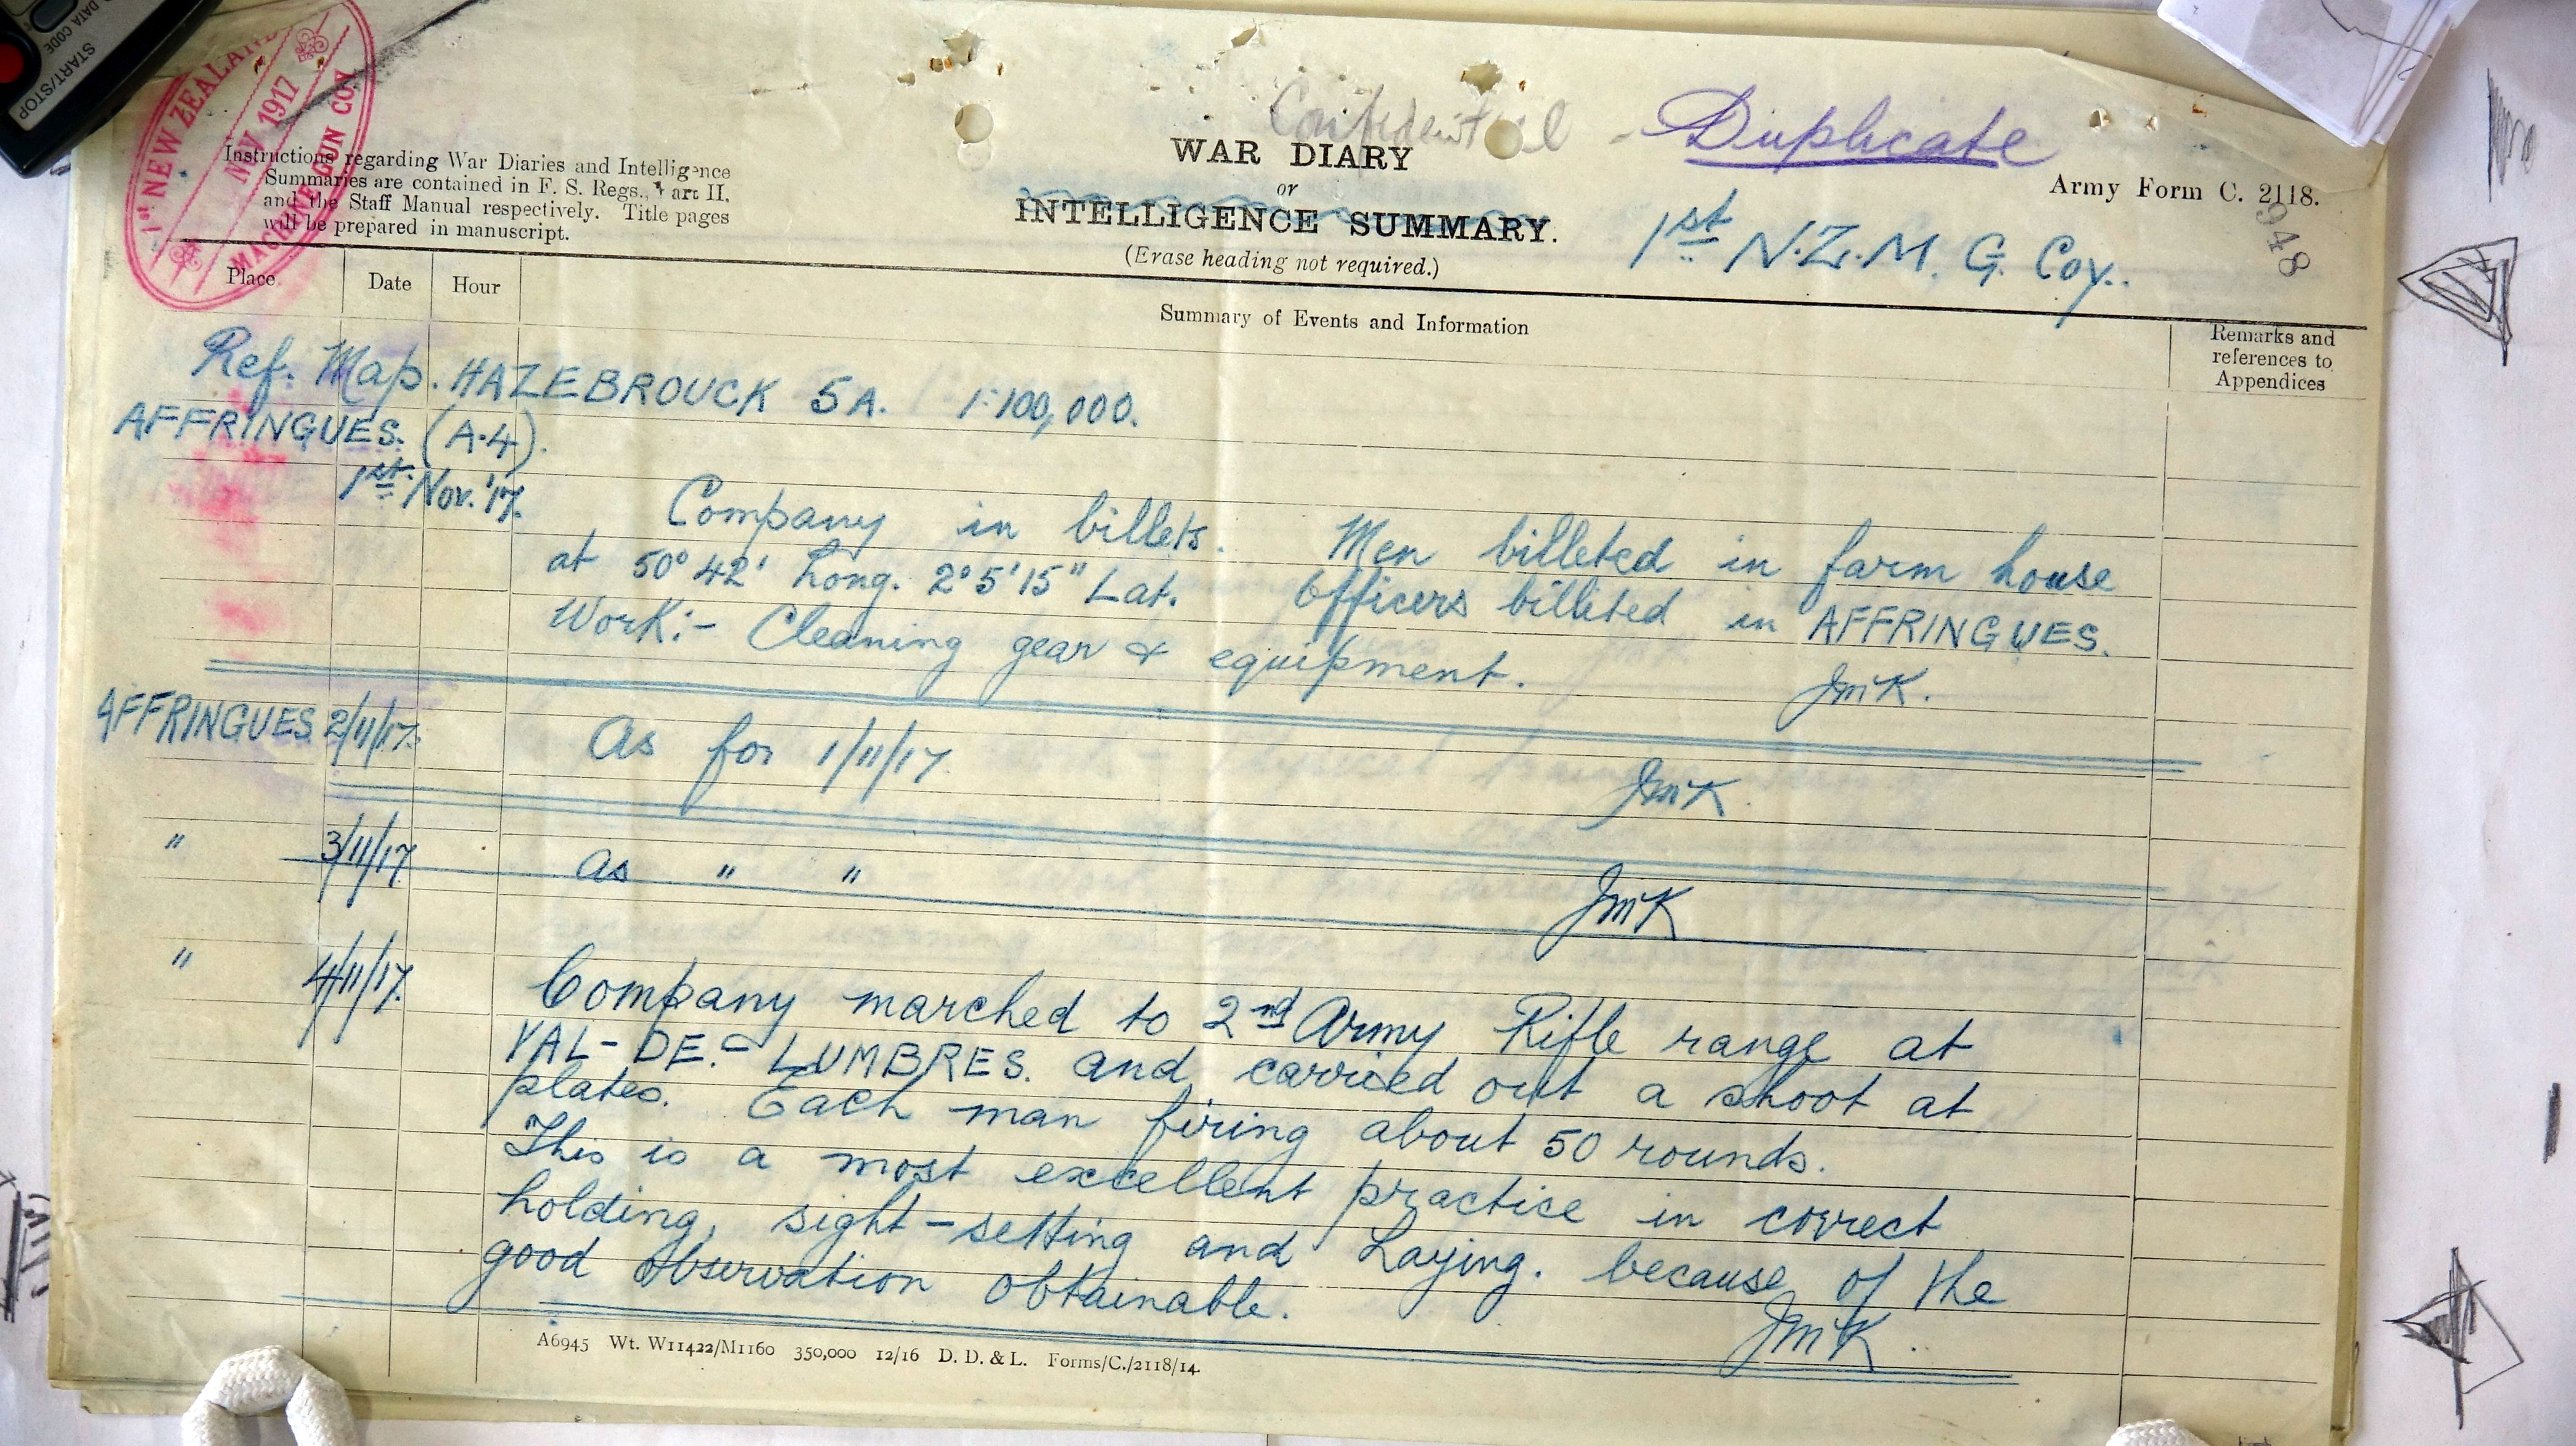 DATA CODE
START/STOP
1st NEW ZEALAND
NOV 1917
MACHINE GUN COY
Confidential - Duplicate
Instructions regarding War Diaries and Intelligence
Summaries are contained in F. S. Regs., Part II,
and the Staff Manual respectively. Title pages
will be prepared in manuscript.
WAR DIARY
or
INTELLIGENCE SUMMARY.
(Erase heading not required.)
Army Form C. 2118.
948
1st N.Z.M.G. Coy.
Place Date Hour Summary of Events and Information Remarks and
references to
Appendices
Ref. Map. HAZEBROUCK 5A. 1:100,000.
AFFRINGUES. (A.4).
1st Nov. '17. Company in billets. Men billeted in farm house
at 50° 42' Long. 2° 5' 15" Lat. Officers billeted in AFFRINGUES.
Work:- Cleaning gear & equipment. JMcK.
AFFRINGUES 2/11/17. As for 1/11/17. JMcK.
" 3/11/17 As " " JMcK
" 4/11/17. Company marched to 2nd Army Rifle range at
VAL-DE.-LUMBRES. and carried out a shoot at
plates. Each man firing about 50 rounds.
This is a most excellent practice in correct
holding, sight-setting and Laying. because of the
good observation obtainable. JMcK.
A6945 Wt. W11422/M1160 350,000 12/16 D. D. & L. Forms/C./2118/14